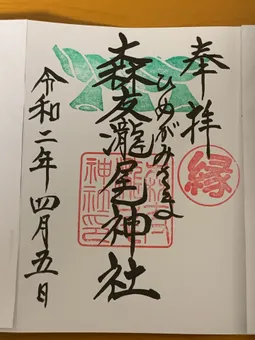 奉拝
縁
ひめがみさま
森友瀧尾神社
令和二年四月五日